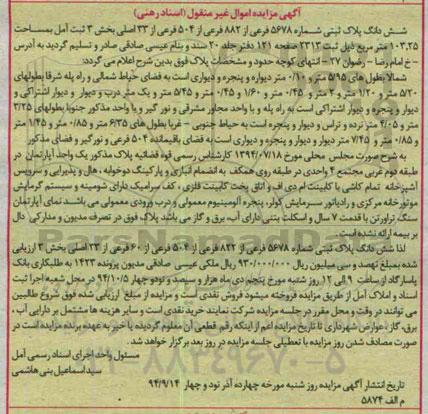 آگهی مزایده اموال غیر منقول (اسناد رهنی)
شش دانگ پلاک ثبتی شماره ۵۶۷۸ فرعی از ۸۸۲ فرعی از ۵۰۴ فرعی از ۳۳ اصلی بخش ۳ ثبت آمل بمساحت
۱۰۳،۲۵ متر مربع ذیل ثبت ۲۳۱۲ صفحه ۱۲۱ دفتر جلد ۲۰ سند و بنام عیسی صادقی صادر و تسلیم گردید به آدرس
- خ امام رضا - رضوان ۲۷ - انتهای کوچه حدود و مشخصات پلاک فوق بدین شرح اعلام می گردد:
شمالا بطول های ۵/۹۵ متر و ۰/۱۰ متر دیواره و پنجره و دیواری است به فضای حیاط شمالی و راه پله شرقا بطولهای
۵/۲۰ متر و ۱/۲۰ متر و ۲ متر و ۰/۴۵ متر و ۱/۶۰ متر و ۰/۴۵ متر و ۵/۴۵ متر و یک متر درب و دیوار و دیوار اشتراکی و
دیوار و پنجره و دیوار اشتراکی است به راه پله و با واحد مجاور مشرقی و نور گیر و با واحد مذکور جنوبا بطولهای ۳/۲۵
متر و ۴/۰۵ متر نرده و تراس و دیوار و پنجره است به حیاط جنوبی - غربا بطول های ۶/۳۵ متر و ۰/۸۵ متر و ۱/۴۵ متر
و ۰/۸۵ متر و ۷/۴۵ متر دیوار و دیوار و پنجره و دیواری است به فضای باقیمانده ۵۰۴ فرعی و نورگیر و فضای مذکور
به شرح صورت مجلس محلی مورخ ۱۳۹۴/۰۷/۱۸ کارشناس رسمی قوه قضائیه پلاک مذکور یک واحد آپارتمان در
طبقه دوم غربی مجتمع ۴ واحدی در طبقه روی همکف به انضمام انباری و پارکینگ دوخوابه، هال و پذیرایی و سرویس
آشپزخانه تمام کاشی با کابینت ام دی اف و اتاق پخت کابینت فلزی، کف سرامیک دارای شومینه و سیستم گرمایش
موتورخانه مرکزی و رادیاتور سرمایش کولر، پنجره آلومینیوم معمولی و درب ورودی معمولی می باشد. نمای آپارتمان
سنگ تراورتن با قدمت ۷ سال و اسکلت بتنی دارای آب، برق و گاز می باشد پلاک فوق در تصرف مدیون و مدارکی دال
بر بیمه ارائه نشده است.
لذا شش دانگ پلاک ثبتی شماره ۵۶۷۸ فرعی از ۸۲۲ فرعی از ۵۰۴ فرعی از ۶۰ فرعی از ۳۳ اصلی بخش ۳ ارزیابی
شده بمبلغ نهصد و سی میلیون ریال ۹۳۰/۰۰۰/۰۰۰ ریال ملکی عیسی صادقی مدیون پرونده ۱۴۲۳ به طلبکاری بانک
پاسارگاد از ساعت ۹ الی ۱۲ روز شنبه مورخ پنجم دی ماه هزار و سیصد و نود و چهار ۹۴/۱۰/۵ در محل شعبه اجرا ثبت
اسناد و املاک آمل از طریق مزایده فروخته میشود فروش نقدی است و مزایده از مبلغ ارزیابی شده فوق شروع طالبین
می توانند در وقت و محل مقرر در جلسه مزایده شرکت نمایند خرید نقدی است و سایر هزینه ها مشتمل بر دارایی آب،
برق، گاز، عوارض شهرداری تا تاریخ مزایده اعم از اینکه رقم قطعی آن معلوم گردیده یا خیر به عهده برنده مزایده است در
صورت مصادف شدن روز مزایده با تعطیلی جلسه مزایده در روز بعد برگزار خواهد شد.
مسئول واحد اجرای اسناد رسمی آمل
سید اسماعیل بنی هاشمی
تاریخ انتشار آگهی مزایده روز شنبه مورخه چهارده آذر نود و چهار ۹۴/۹/۱۴
م الف ۵۸۷۴